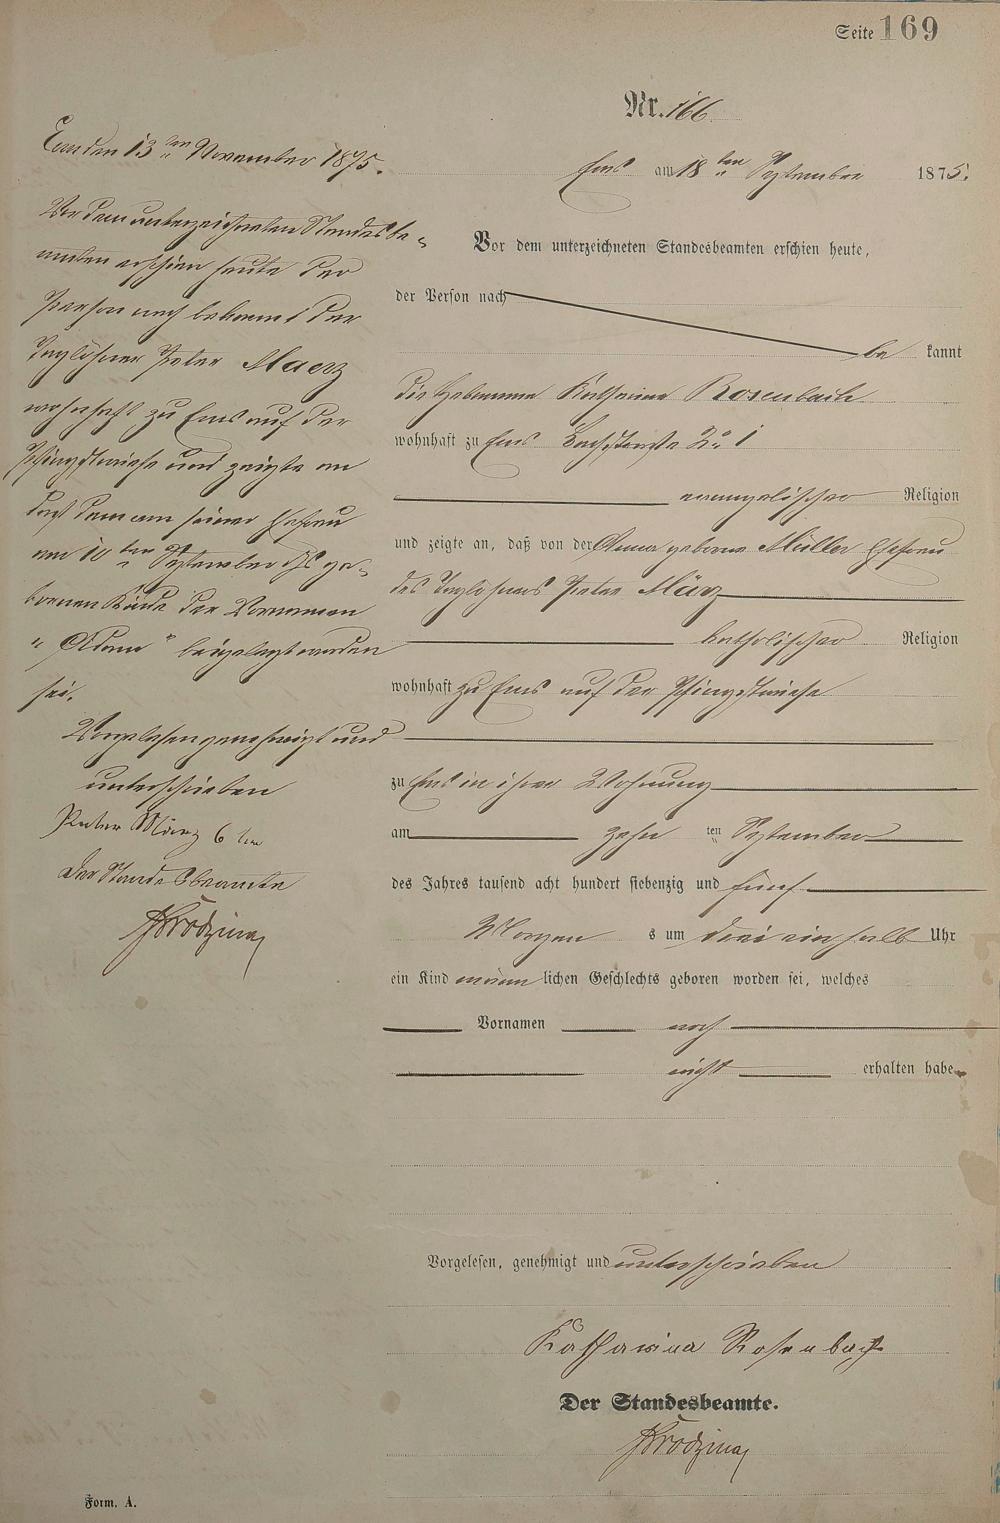 Seite 169
Nr. 166.
Ems am 18 ten September 1875.
Vor dem unterzeichneten Standesbeamten erschien heute,
der Person nach
be kannt
die Hebamme Katharina Rosenbach
wohnhaft zu Ems Bachstraße No 1
evangelischer Religion
und zeigte an, daß von der Anna geborne Müller Ehefrau
des Taglöhners Peter März
katholischer Religion
wohnhaft zu Ems auf der Pfingstwiese
zu Ems in ihrer Wohnung
am zehn ten September
des Jahres tausend acht hundert siebenzig und fünf
Morgen s um drei ein halb Uhr
ein Kind männ lichen Geschlechts geboren worden sei, welches
Vornamen noch
nicht erhalten habe
Vorgelesen, genehmigt und unterschrieben
Katharina Rosenbach
Der Standesbeamte.
Ems den 13 ten November 1875.
Vor dem unterzeichneten Standesbe-
amten erschien heute der
Person nach bekannt der
Taglöhner Peter Maerz
wohnhaft zu Ems auf der
Pfingstwiese und zeigte an
daß dem von seiner Ehefrau
am 10 ten September ds ge-
borenen Kinde der Vornamen
"Adam" beigelegt worden
sei.
Vorgelesen genehmigt und
unterschrieben
Peter März
Der Standesbeamte
Form. A.